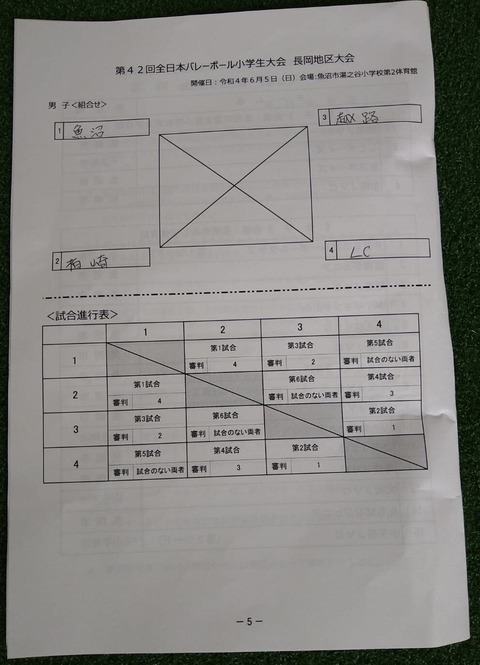 第42回全日本バレーボール小学生大会 長岡地区大会
開催日:令和4年6月5日(日)会場:魚沼市湯之谷小学校第2体育館
男 子<組合せ>
1 魚沼
3 越路
2 柏崎
4 LC
<試合進行表>
1 2 3 4
1 第1試合 第3試合 第5試合
審判 4 審判 2 審判 試合のない両者
2 第1試合 第6試合 第4試合
審判 4 審判 試合のない両者 審判 3
3 第3試合 第6試合 第2試合
審判 2 審判 試合のない両者 審判 1
4 第5試合 第4試合 第2試合
審判 試合のない両者 審判 3 審判 1
-5-